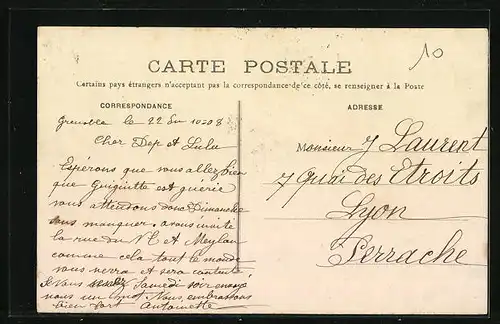 10
CARTE POSTALE
Certains pays étrangers n'acceptant pas la correspondance de ce côté, se renseigner à la Poste
CORRESPONDANCE
Grenoble le 22 10 08
Cher Dep et Lulu
Espérons que vous allez bien
que Guiguitte est guerie
vous attendons donc Dimanche
sans manquer. avons invité
la rue du Vt et Meylan
comme cela tout le monde
vous verra et sera content
si vous Samedi soir
nous un Nous embrassons
bien fort Antoinette
ADRESSE
Monsieur J Laurent
7 quai des Etroits
Lyon
Perrache